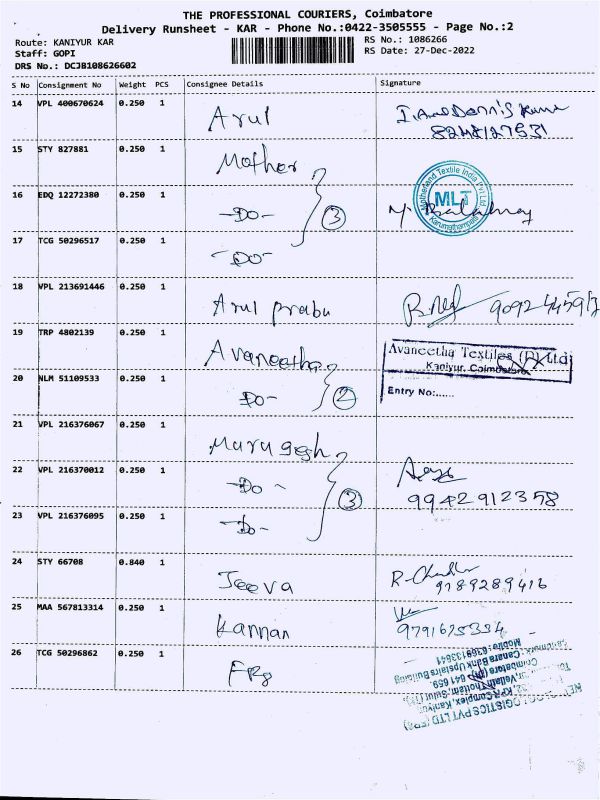 THE PROFESSIONAL COURIERS, Coimbatore
Delivery Runsheet - KAR - Phone No.:0422-3505555 - Page No.:2
Route: KANIYUR KAR
RS No.: 1086266
Staff: GOPI
RS Date: 27-Dec-2022
DRS No.: DCJB108626602
S No Consignment No Weight PCS Consignee Details Signature
14 VPL 400670624 0.250 1 Arul
15 STY 827881 0.250 1 Mother
16 EDQ 12272380 0.250 1 -Do- 3
Motherland Textile India Pvt Ltd
MLT
Karumathampatti
17 TCG 50296517 0.250 1 -Do-
18 VPL 213691446 0.250 1 Arul prabu
19 TRP 4802139 0.250 1 Avaneetha
Avaneetha Textiles (P) Ltd
Kaniyur, Coimbatore
20 NLM 51109533 0.250 1 -Do- 2
Entry No:......
21 VPL 216376067 0.250 1 Murugesh
22 VPL 216370012 0.250 1 -Do- 3
9942912358
23 VPL 216376095 0.250 1 -Do-
24 STY 66708 0.840 1 Jeeva
9789289416
25 MAA 567813314 0.250 1 Kannan
26 TCG 50296862 0.250 1
LOGISTICS PVT LTD
KPR Complex, Kaniyur
Canara Bank Upstairs Building
Mobile: 6369133641